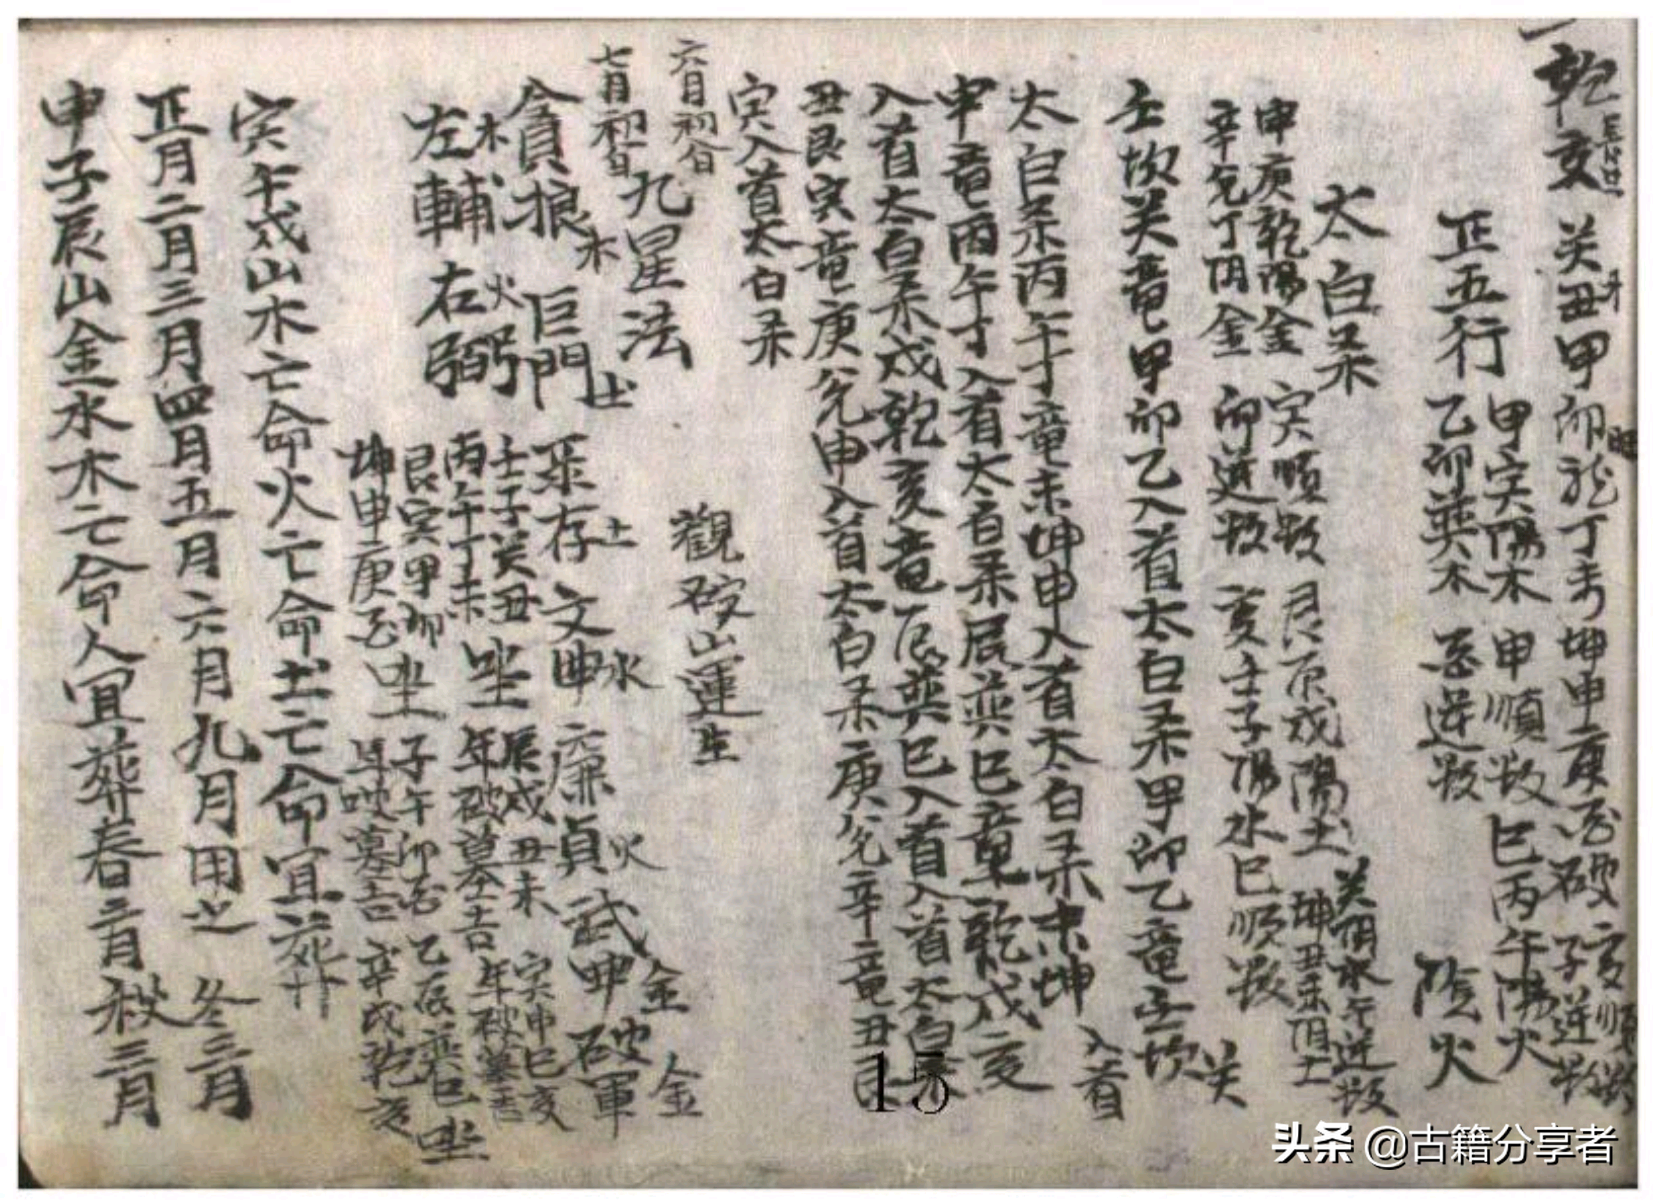 一乾亥 癸丑甲卯龍丁未坤申庚 破 亥順数 子逆数
甲寅陽木 申順数 巳丙午陽火
正五行 乙卯巽木 逆数 陰火
太白杀
申庚乾陽金 寅順数 艮辰戌陽土 癸陰水午逆数
辛兌丁阴金 卯逆数 亥壬子陽水巳順数 坤丑未阴土
壬坎癸竜甲卯乙入首太白杀甲卯乙竜壬坎癸
入首
太白杀丙午丁竜未坤申入首太白杀未坤
申竜丙午丁入首太白杀辰巽巳竜乾戌亥
入首太白杀戌乾亥竜辰巽巳入首太白杀
丑艮寅竜庚兌申入首太白杀庚兌辛竜丑艮
寅入首太白杀
六月初
七月初
觀破山運生
九星法
貪狼木 巨門土 录存土 文曲水 廉貞火 武曲金 破軍金
左輔木 右弼火
壬子癸丑 丙午丁未 坐 辰戌丑未 年破墓吉 寅申巳亥 年破墓吉
艮寅甲卯 坤申庚酉 坐 子午卯酉 年破墓吉 乙辰巽巳 辛戌乾亥 坐
寅午戌山木亡命火亡命土亡命宜葬
正月二月三月四月五月六月九月用之 冬三月
申子辰山金水木亡命人宜葬春三月 秋三月
15
头条 @古籍分享者